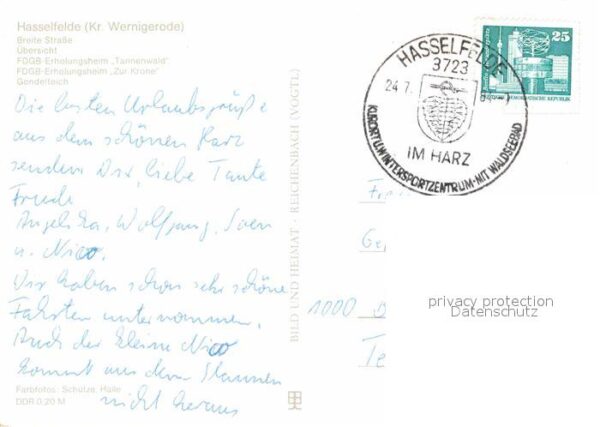 Hasselfelde (Kr. Wernigerode)
Breite Straße
Übersicht
FDGB-Erholungsheim „Tannenwald"
FDGB-Erholungsheim „Zur Krone"
Gondelteich
Die besten Urlaubsgrüße
aus dem schönen Harz
senden Dir, liebe Tante
Friede
Angelika, Wolfgang, Sven
u. Nico.
Wir haben schon sehr schöne
Fahrten unternommen.
Auch der kleine Nico
kommt aus dem Staunen
nicht heraus
Farbfotos: Schulze, Halle
DDR 0,20 M
BILD UND HEIMAT · REICHENBACH (VOGTL)
HASSELFELDE
3723
24.7.
IM HARZ
KURORT U. WINTERSPORTZENTRUM · MIT WALDSEEBAD
25
DEMOKRATISCHE REPUBLIK
1000
privacy protection
Datenschutz